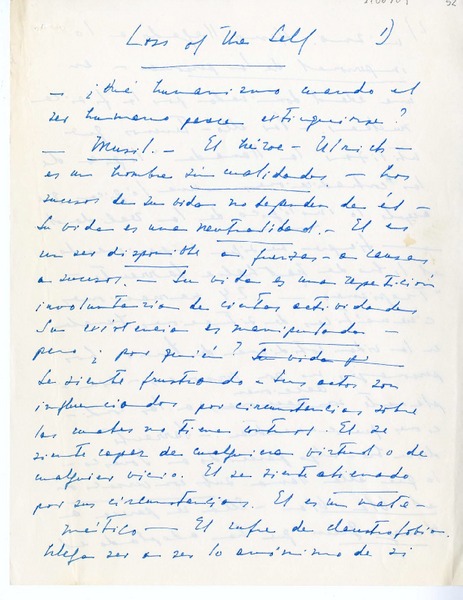 52
Loss of the Self 1)
- ¿Qué humanismo cuando el
ser humano parece extinguirse?
- Musil. - El héroe - Ulrich -
es un hombre sin cualidades - Los
sucesos de su vida no dependen de él -
Su vida es una neutralidad. - El es
un ser disponible a fuerzas - a causas
a sucesos. - Su vida es una repetición
involuntaria de ciertas actividades
Su existencia es manipulada -
pero ¿por quién? Su vida
Se siente frustrado - Sus actos son
influenciados por circunstancias sobre
las cuales no tiene control. El se
siente capaz de cualquier virtud o de
cualquier vicio. El se siente alienado
por sus circunstancias. El es un mate-
mático - El sufre de claustrofobia.
Llega ser a ser lo anónimo de si